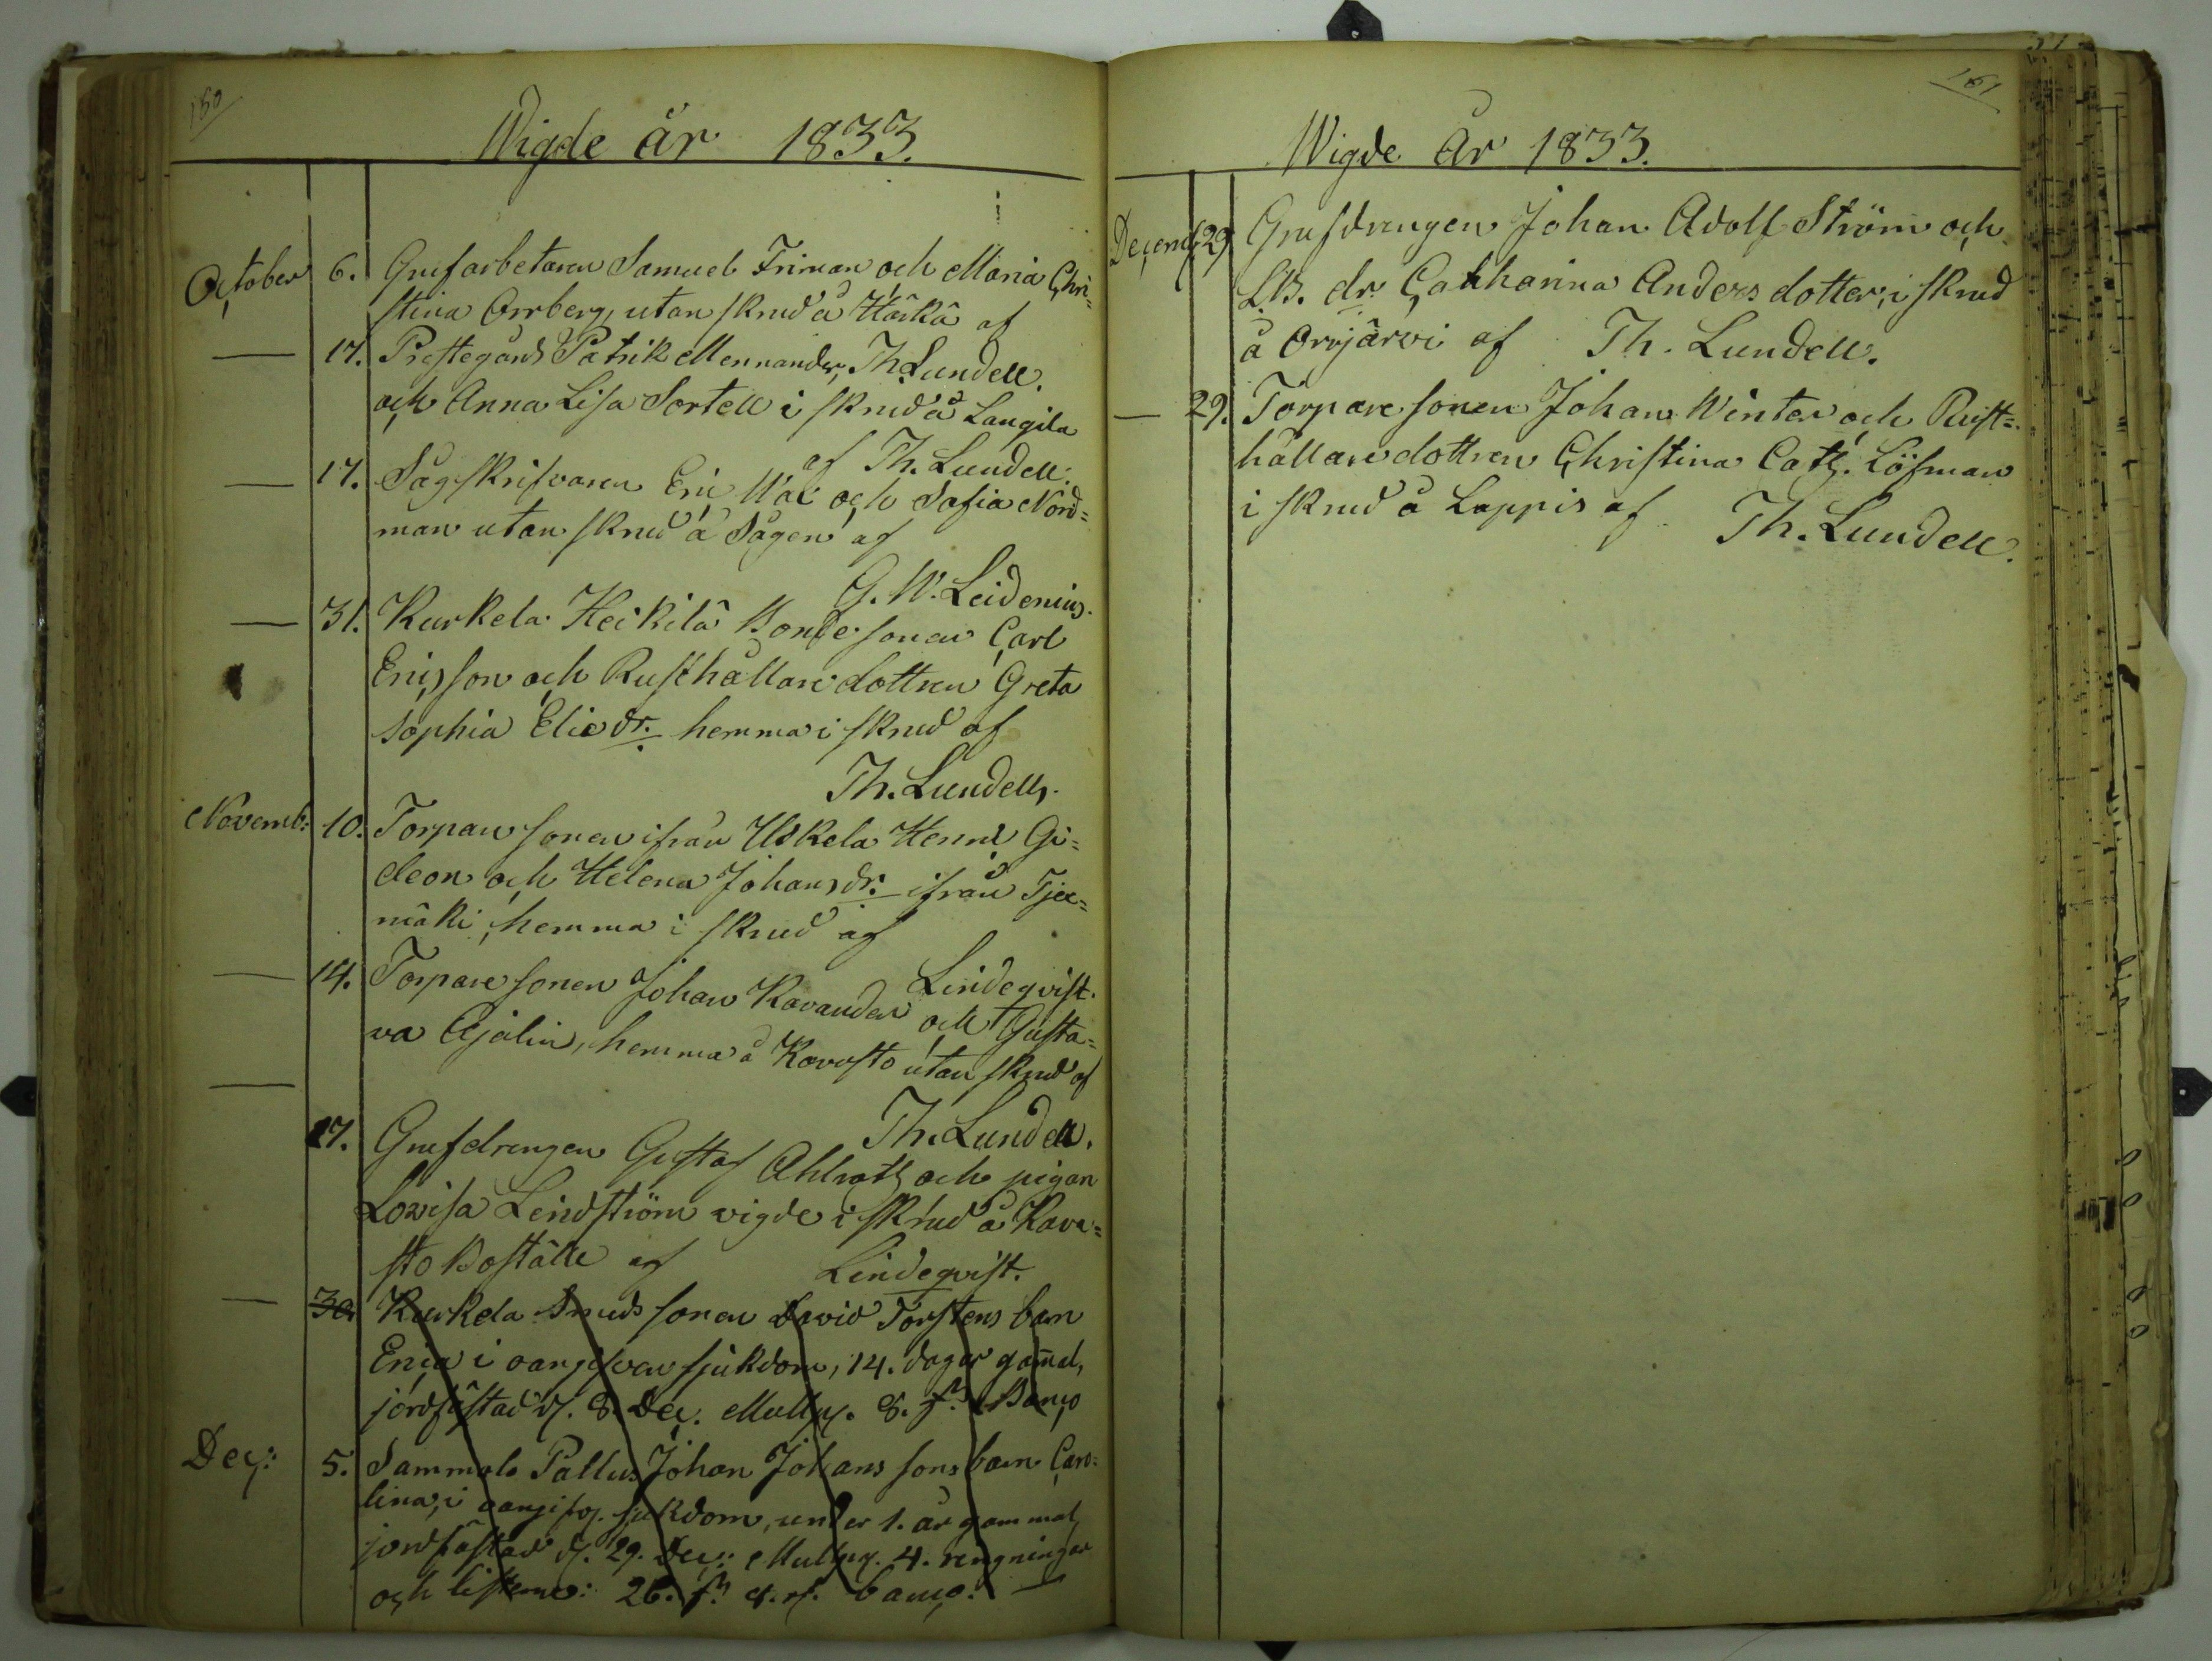 160
Wigde år 1833.
October 6. Grufarbetaren Samuel Friman och Maria Chri=
stina Orrberg, utan skrud å Härkä af
Th. Lundell.
— 17. Prestegårds Patrik Mennander,
och Anna Lisa Sortell i skrud å Laugila
af Th. Lundell.
— 17. Sågskrifvaren Eric Wal och Sofia Nord=
man utan skrud å Sågen af
G. W. Leidenius.
— 31. Kurkela Heikilä Bondesonen Carl
Ericsson och Rusthållaredottren Greta
Sophia Eliedr. hemma i skrud af
Th. Lundell.
Novemb: 10. Torparesonen ifrån Uskela Henric Gi=
deon och Helena Johansdr. ifrån
mäki, hemma i skrud af
Lindeqvist.
— 14. Torparesonen Johan Kavander och Gusta=
va Ajalin, hemma å Kavasto utan skrud af
Th. Lundell.
— 17. Grufdrengen Gustaf Ahlroth och pigan
Lovisa Lindström vigde i skrud å Kava=
sto Boställe af Lindeqvist.
— 30 Kurkela Smeds sonen David Torstens barn
Erica i oangifven sjukdom, 14. dagar gammal,
jordfästad d. 8. Dec. Mullp. 8. Banco
Dec: 5. Sammalo Pallus Johan Johans sons barn Caro=
lina, i oangifv. sjukdom, under 1. år gammal,
jordfästad d. 29. Dec: Mullp. 4. ringningar
och 26. banco. —
161
Wigde År 1833.
Decemb. 29 Grufdrengen Johan Adolf Ström och
LB. dr. Catharina Andersdotter, i skrud
å Orrjärvi af Th. Lundell.
— 29. Torparesonen Johan Winter och Rust=
hållaredottren Christina Cath. Löfman
i skrud å Lappis af Th. Lundell.